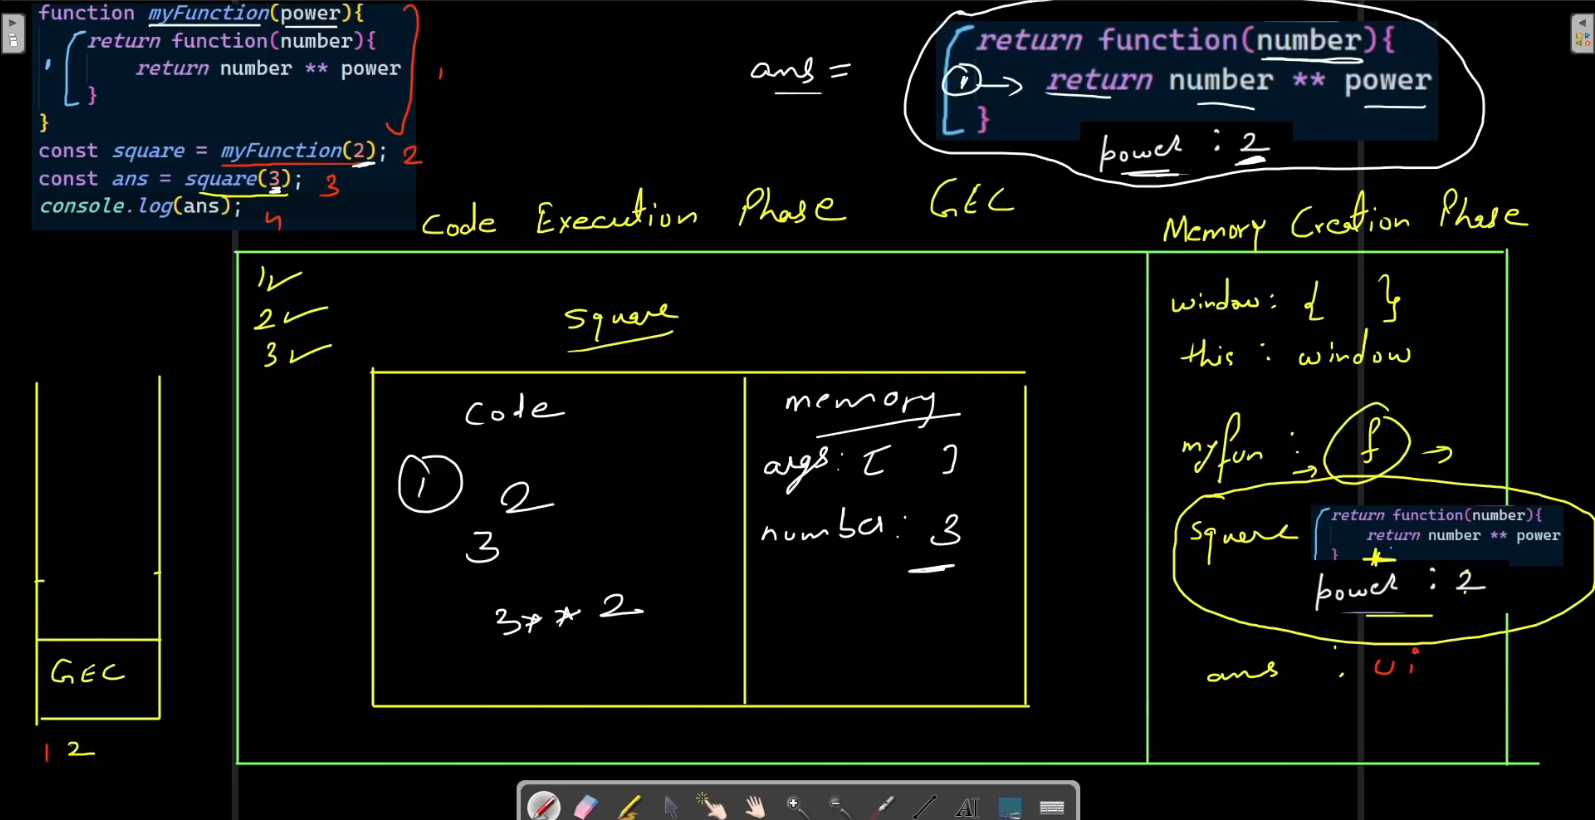 function myFunction(power){
return function(number){
return number ** power
}
}
const square = myFunction(2);
const ans = square(3);
console.log(ans);
1
1
2
3
4
ans =
return function(number){
1 → return number ** power
}
power : 2
Code Execution Phase GEC Memory Creation Phase
1✓
2✓
3✓
square
code
1
2
3
3**2
memory
args: [ ]
number: 3
window: { }
this : window
myfun : → f →
square
return function(number){
return number ** power
}
power : 2
ans : ui
GEC
1 2
AI